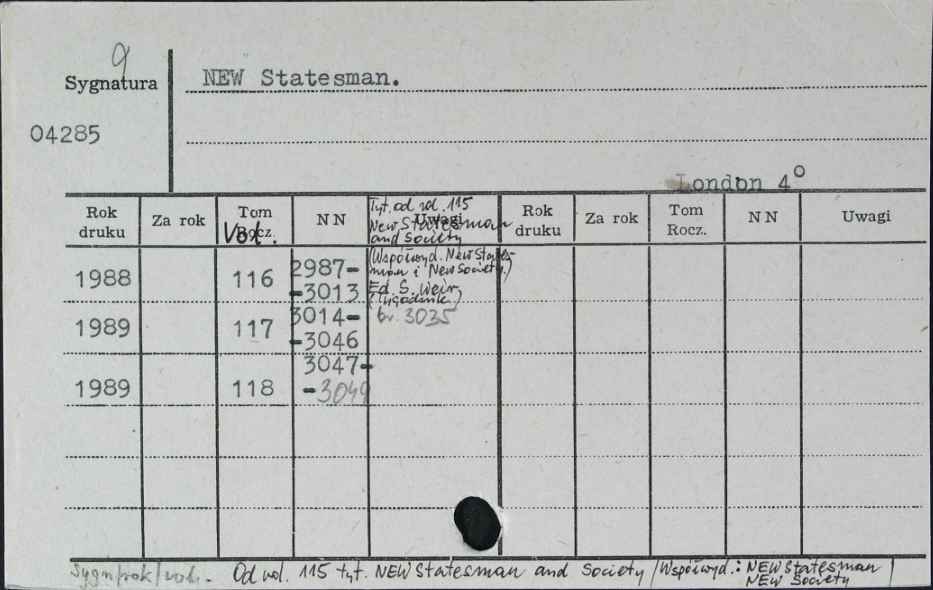 9
Sygnatura
NEW Statesman.
04285
London 4°
Rok druku Za rok Tom Rocz. Vol. NN Uwagi Rok druku Za rok Tom Rocz. NN Uwagi
Tyt. od vol. 115
New Statesman
and Society
(Współwyd. New States-
man i New Society.)
Ed. S. Weir
(Tygodnik)
1988 116 2987-
-3013
1989 117 3014- br. 3035
-3046
1989 118 3047-
-3049
Sygn/rok/vol. Od vol. 115 tyt. NEW Statesman and Society /Współwyd.: NEW Statesman
NEW Society